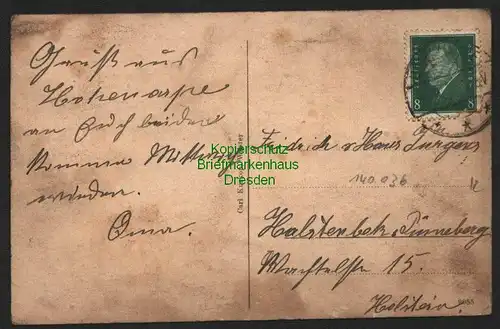 Gruß aus
Hohenaspe
an Euch beiden
komme Mittwoch
wieder.
Oma.
8 8
Carl
Kopierschutz
Briefmarkenhaus
Dresden
Friedrich u Hans Jürgens
140.036
Halstenbek, Pinneberg
Wachtelstr 15.
Holstein.